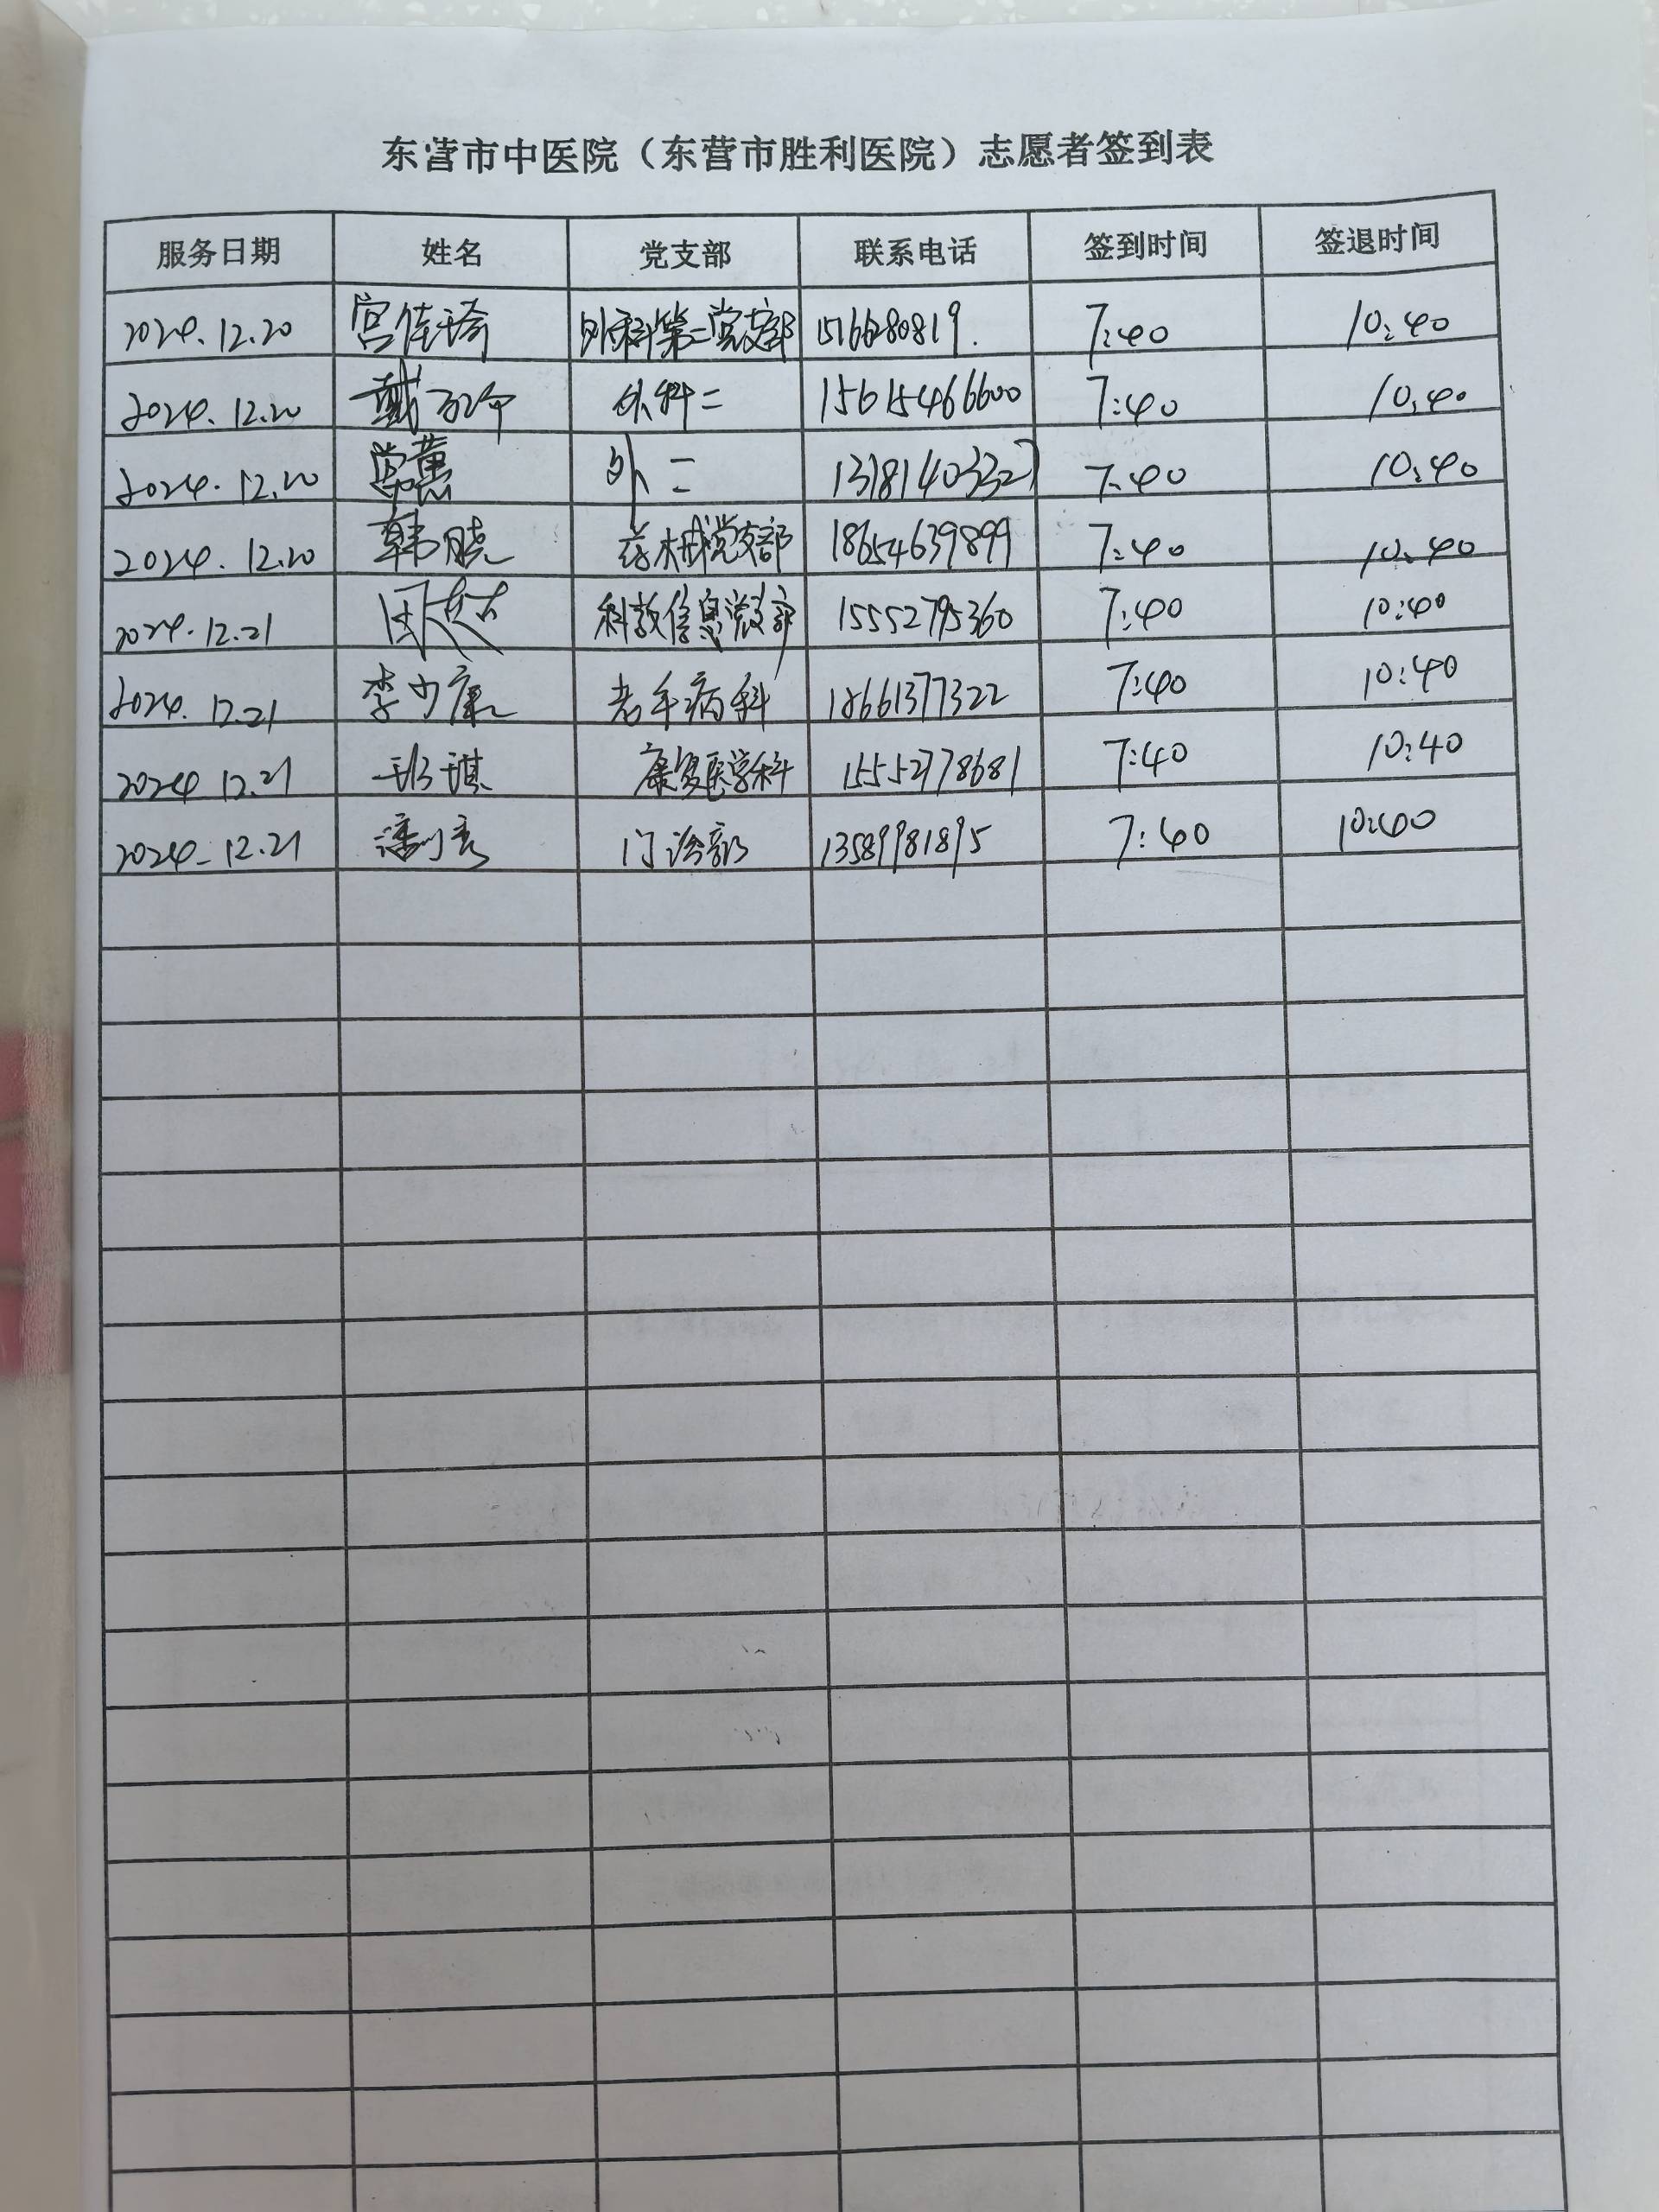 东营市中医院（东营市胜利医院）志愿者签到表
服务日期 姓名 党支部 联系电话 签到时间 签退时间
2024.12.20 宫佳琦 外科第二党支部 7:40 10:40
2024.12.20 戴 外科二 15615466600 7:40 10:40
2024.12.20 常蕙 外二 13181403327 7:40 10:40
2024.12.20 韩晓 药械党支部 18654639899 7:40 10:40
2024.12.21 科教信息党支部 15552795360 7:40 10:40
2024.12.21 李少康 老年病科 18661377322 7:40 10:40
2024.12.21 班琪 康复医学科 15552778681 7:40 10:40
2024.12.21 潘 门诊部 13589981895 7:40 10:40